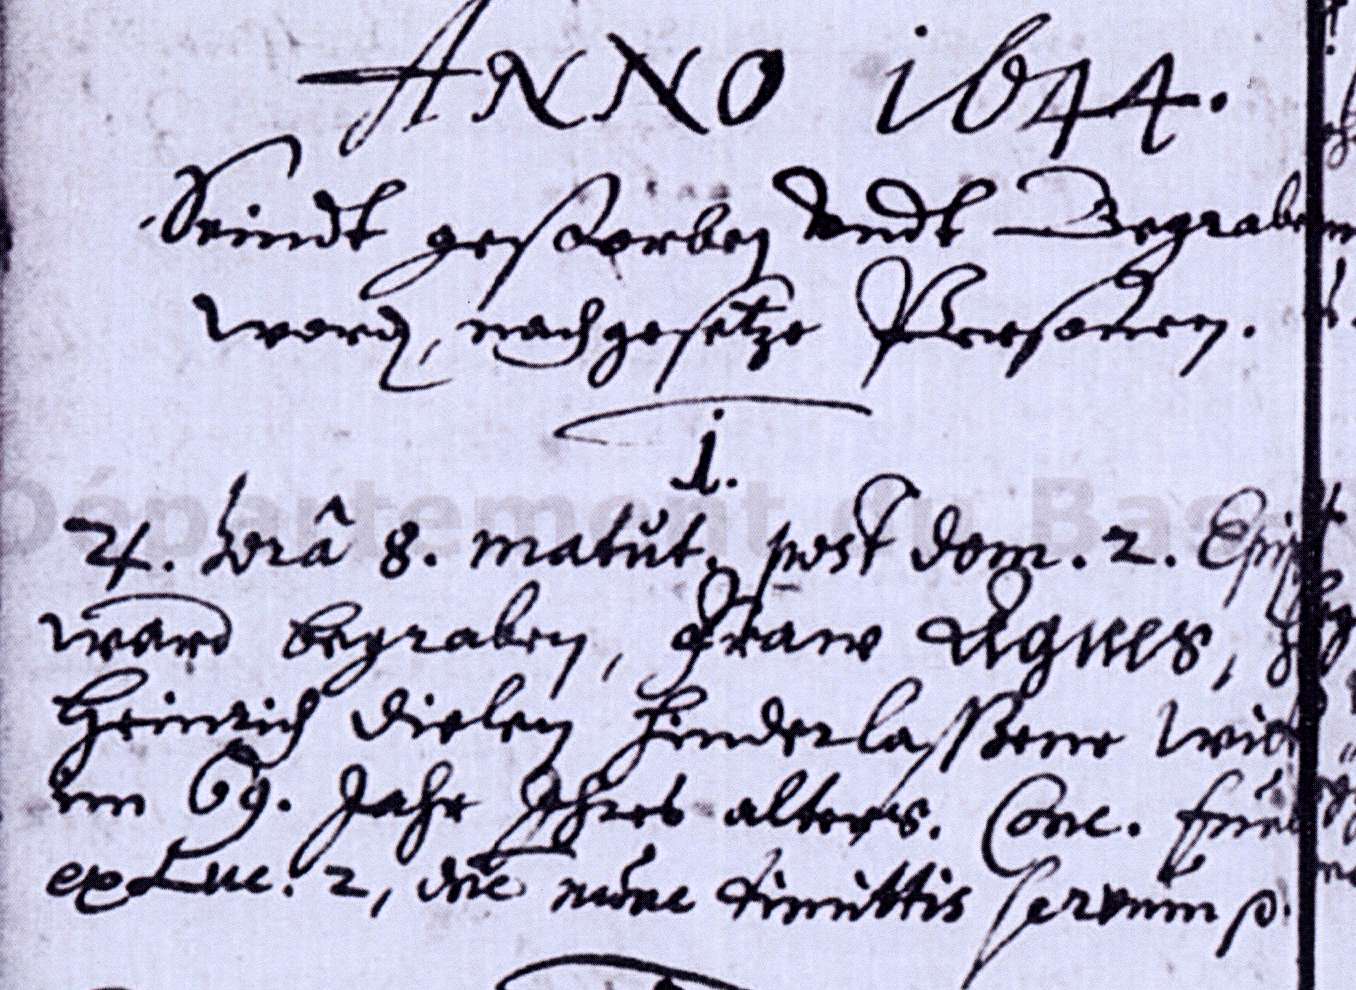 ANNO 1644.
Seindt gestorben Undt Begraben
word, nachgesetze Personen.
1.
♃. horâ 8. matut. post dom. 2. Epiph
ward begraben, Fraw Agnes,
Heinrich Dielen hinderlaßene wit
im 69. Jahr Ihres alters. Conc. fun
ex Luc. 2, dñe nunc dimittis servum
Département du Bas